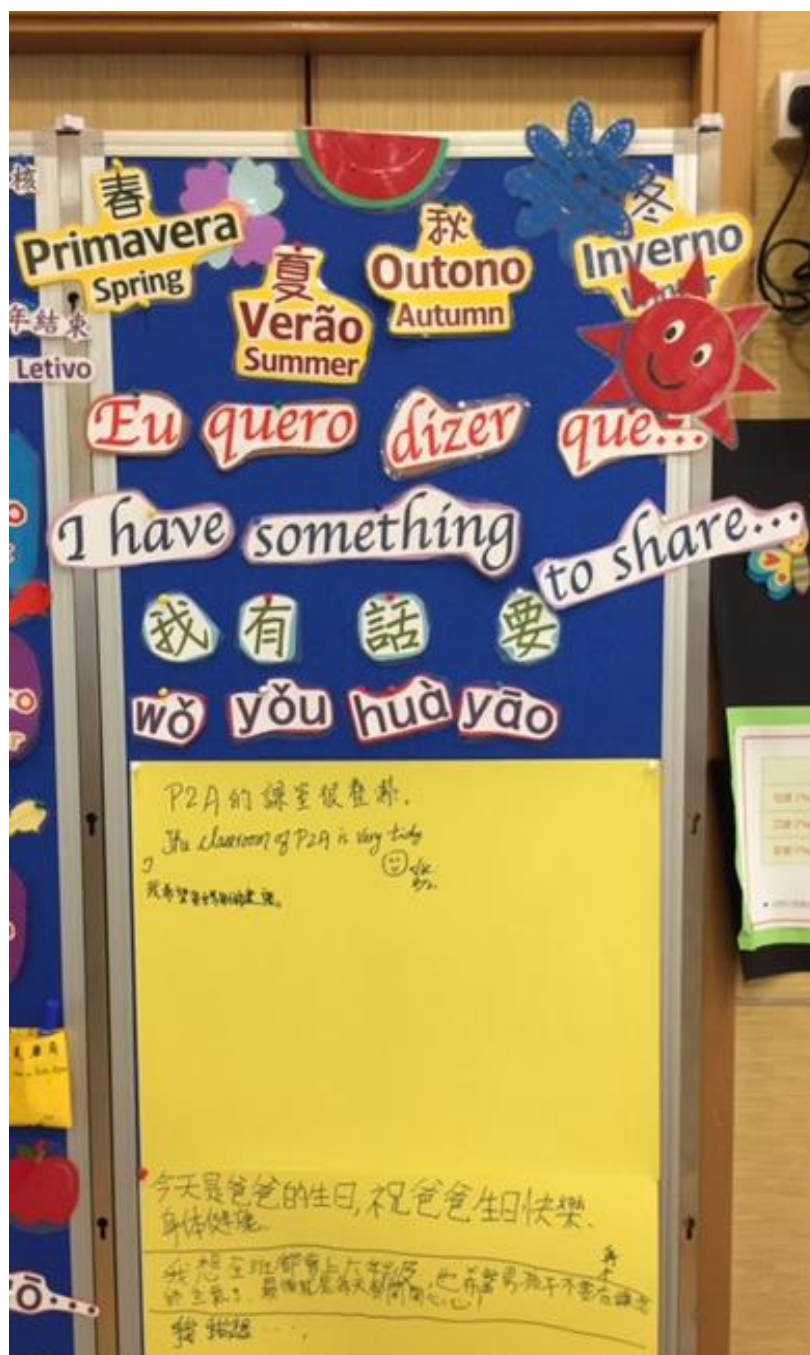 核
春
Primavera
Spring
夏
Verão
Summer
秋
Outono
Autumn
冬
Inverno
Winter
年結束
Letivo
Eu quero dizer que...
I have something to share...
我有話要
wǒ yǒu huà yāo
P2A的課室很整潔.
The classroom of P2A is very tidy
我希望
今天是爸爸的生日,祝爸爸生日快樂.
身体健康
我想全班都會上六年級
也希望男孩子不要在課堂
最後就是每天都開開心心!
我我想....
ō...